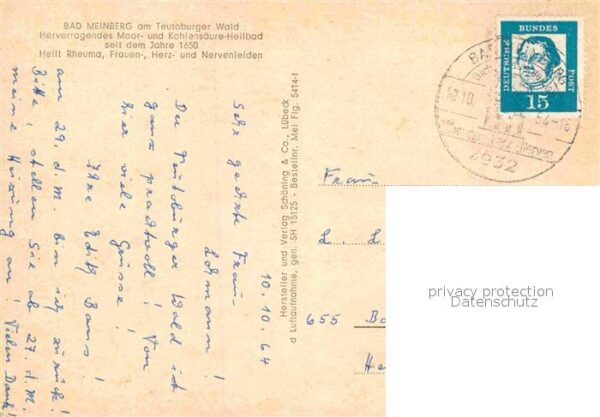 BAD MEINBERG am Teutoburger Wald
Hervorragendes Moor- und Kohlensäure-Heilbad
seit dem Jahre 1650
Heilt Rheuma, Frauen-, Herz- und Nervenleiden
10.10.64
Sehr geehrte Frau
Lohmann!
Der Teutoburger Wald ist
ganz prachtvoll! Von
hier viele Grüsse!
Ihre Edith Baus!
am 29. d.M. bin ich zurück!
Bitte, stellen Sie ab 27. d.M.
meine Heizung an! Vielen Dank!
Hersteller und Verlag Schöning & Co., Lübeck
d Luftaufnahme, gen. SH 15125 - Bestellnr. Mei Flg. 5414-f
DEUTSCHE
BUNDES
POST
15
BAD
10.10.
64-18
4932
Frau
L. L
655 Ba
He
privacy protection
Datenschutz